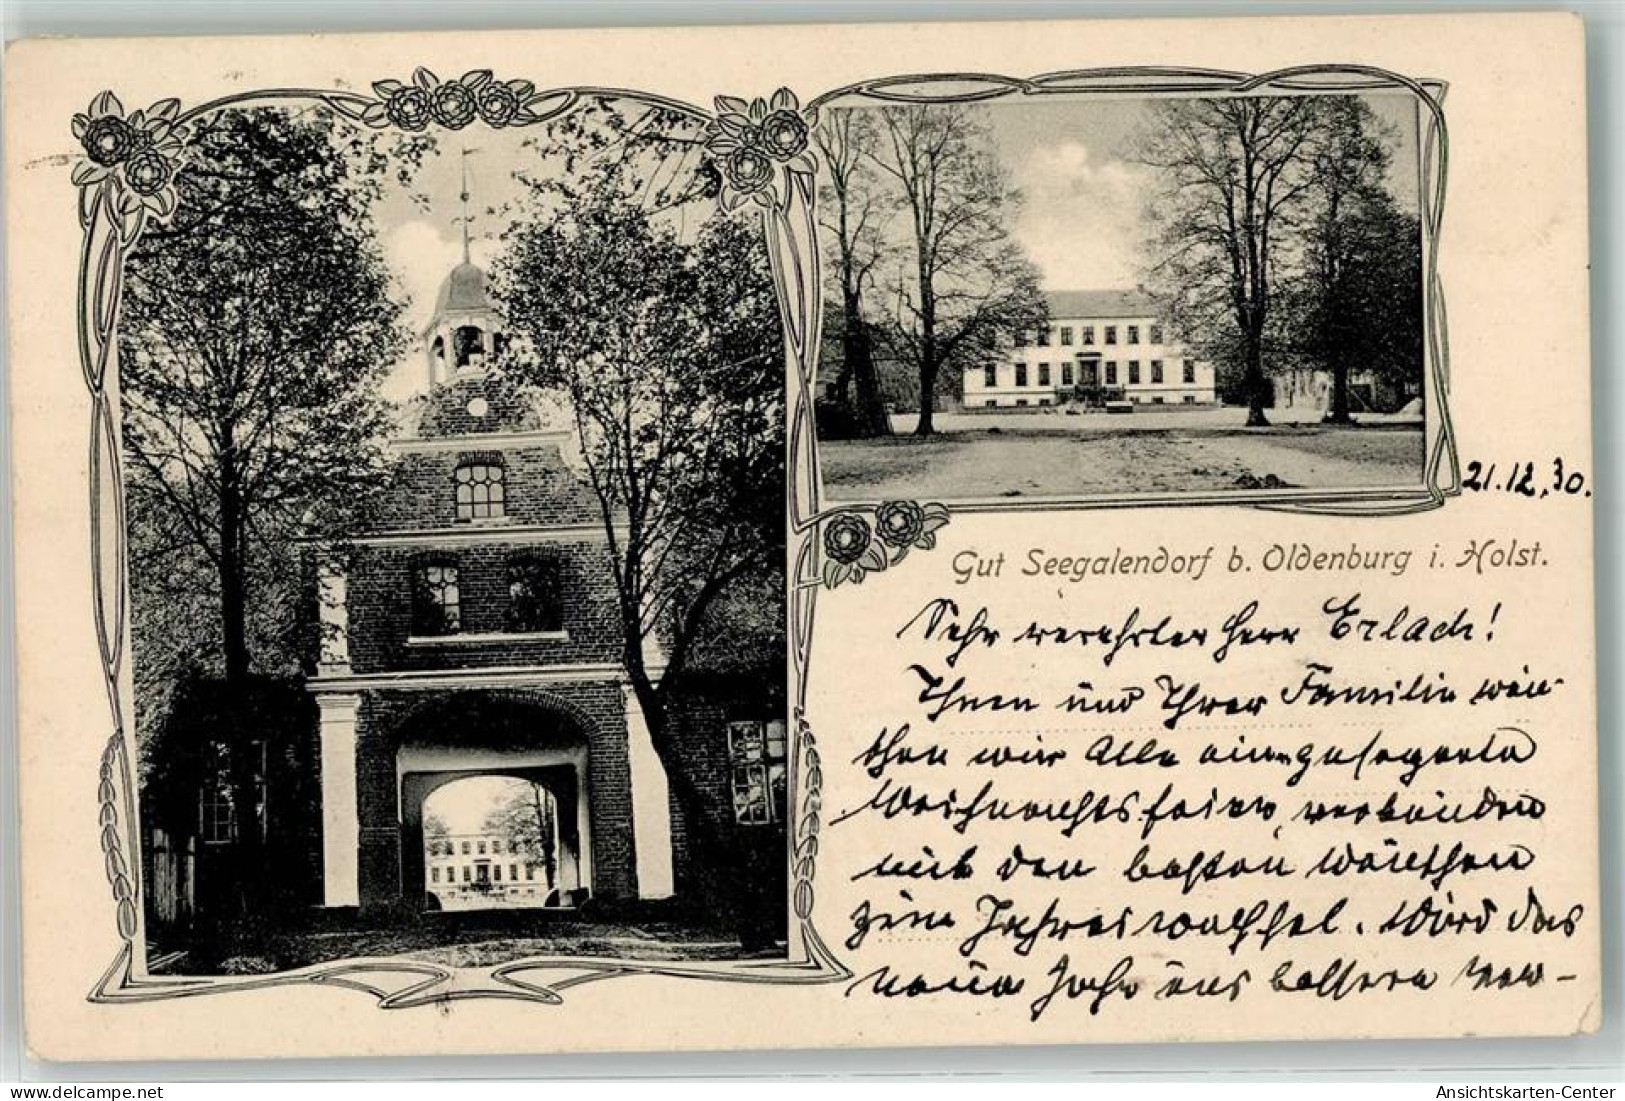 21.12.30.
Gut Seegalendorf b. Oldenburg i. Holst.
Sehr verehrter Herr Erlach!
Ihnen und Ihrer Familie wün-
schen wir Alle eine gesegnete
Weihnachtsfeier, verbunden
mit den besten Wünschen
zum Jahreswechsel. Wird das
neue Jahr uns bessere
Ansichtskarten-Center